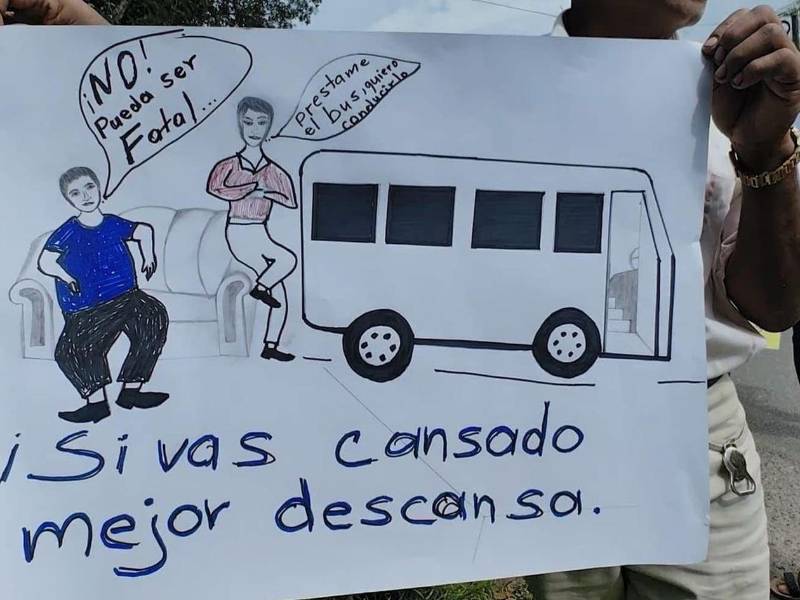 ¡NO!
Pueda ser
Fatal...
prestame
el bus, quiero
conducirlo
¡Si vas cansado
mejor descansa.